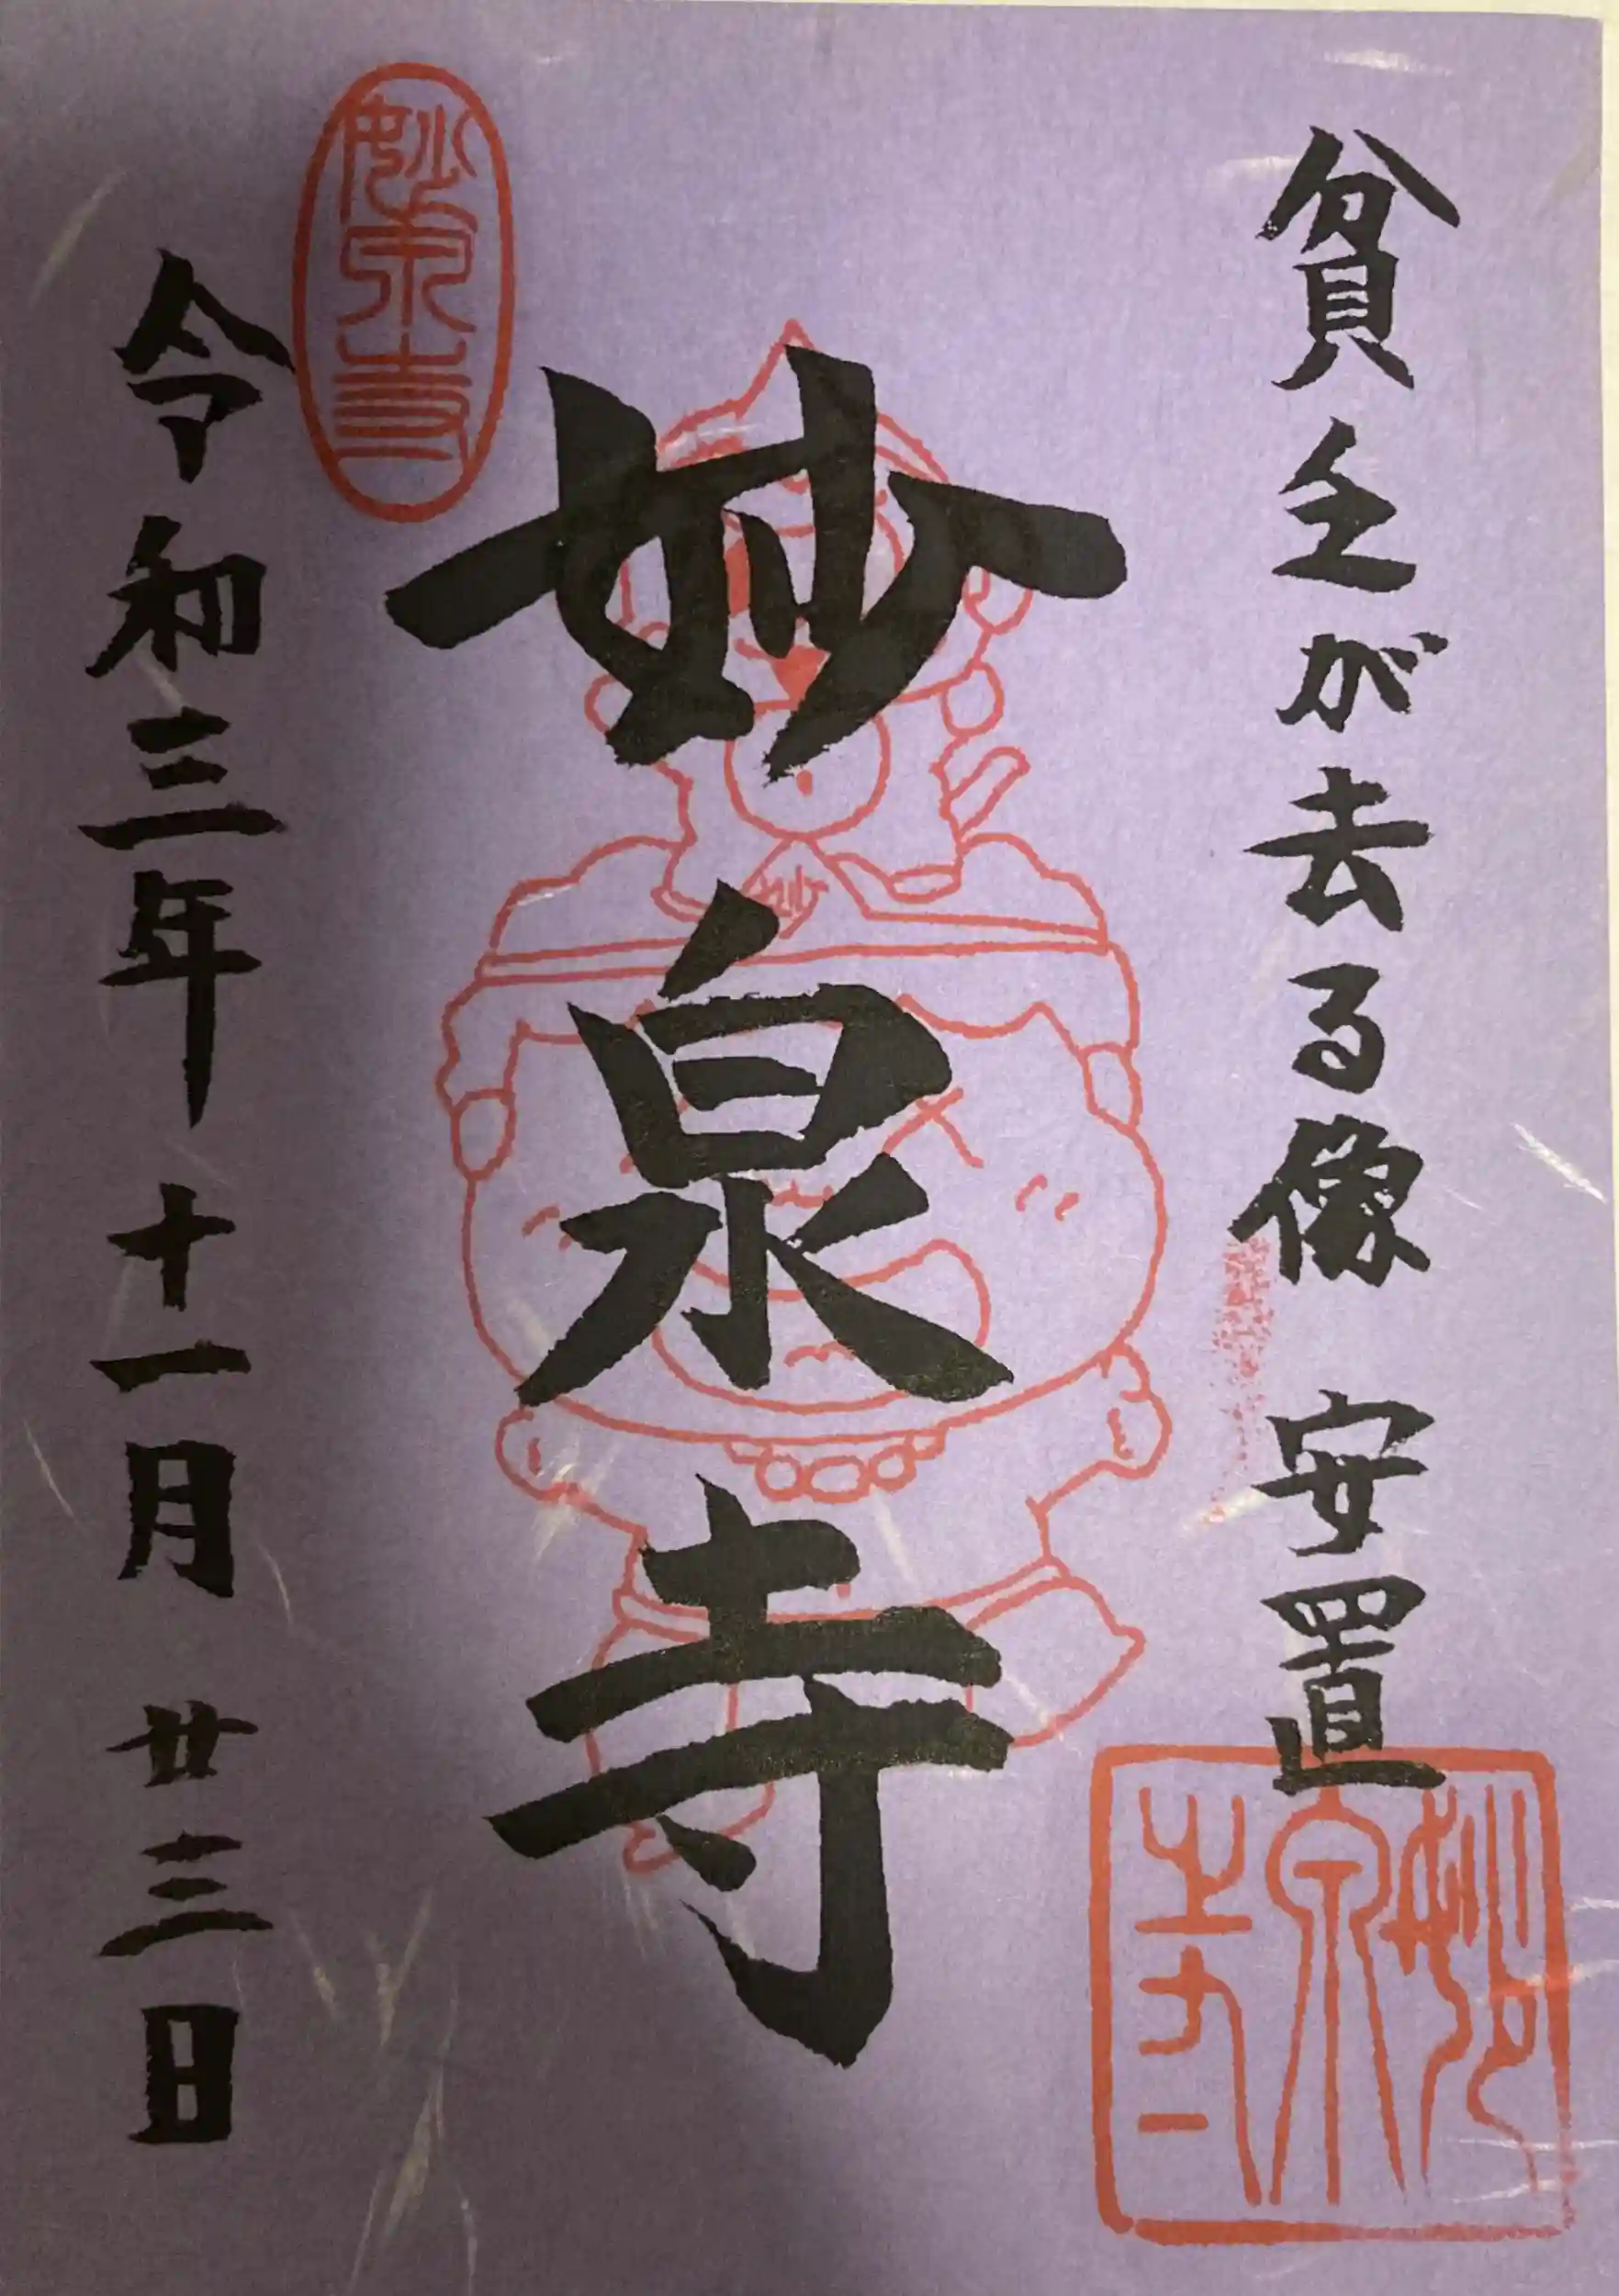 貧乏が去る像 安置
妙泉寺
令和三年 十一月 廿三日
妙泉寺
妙泉寺
妙